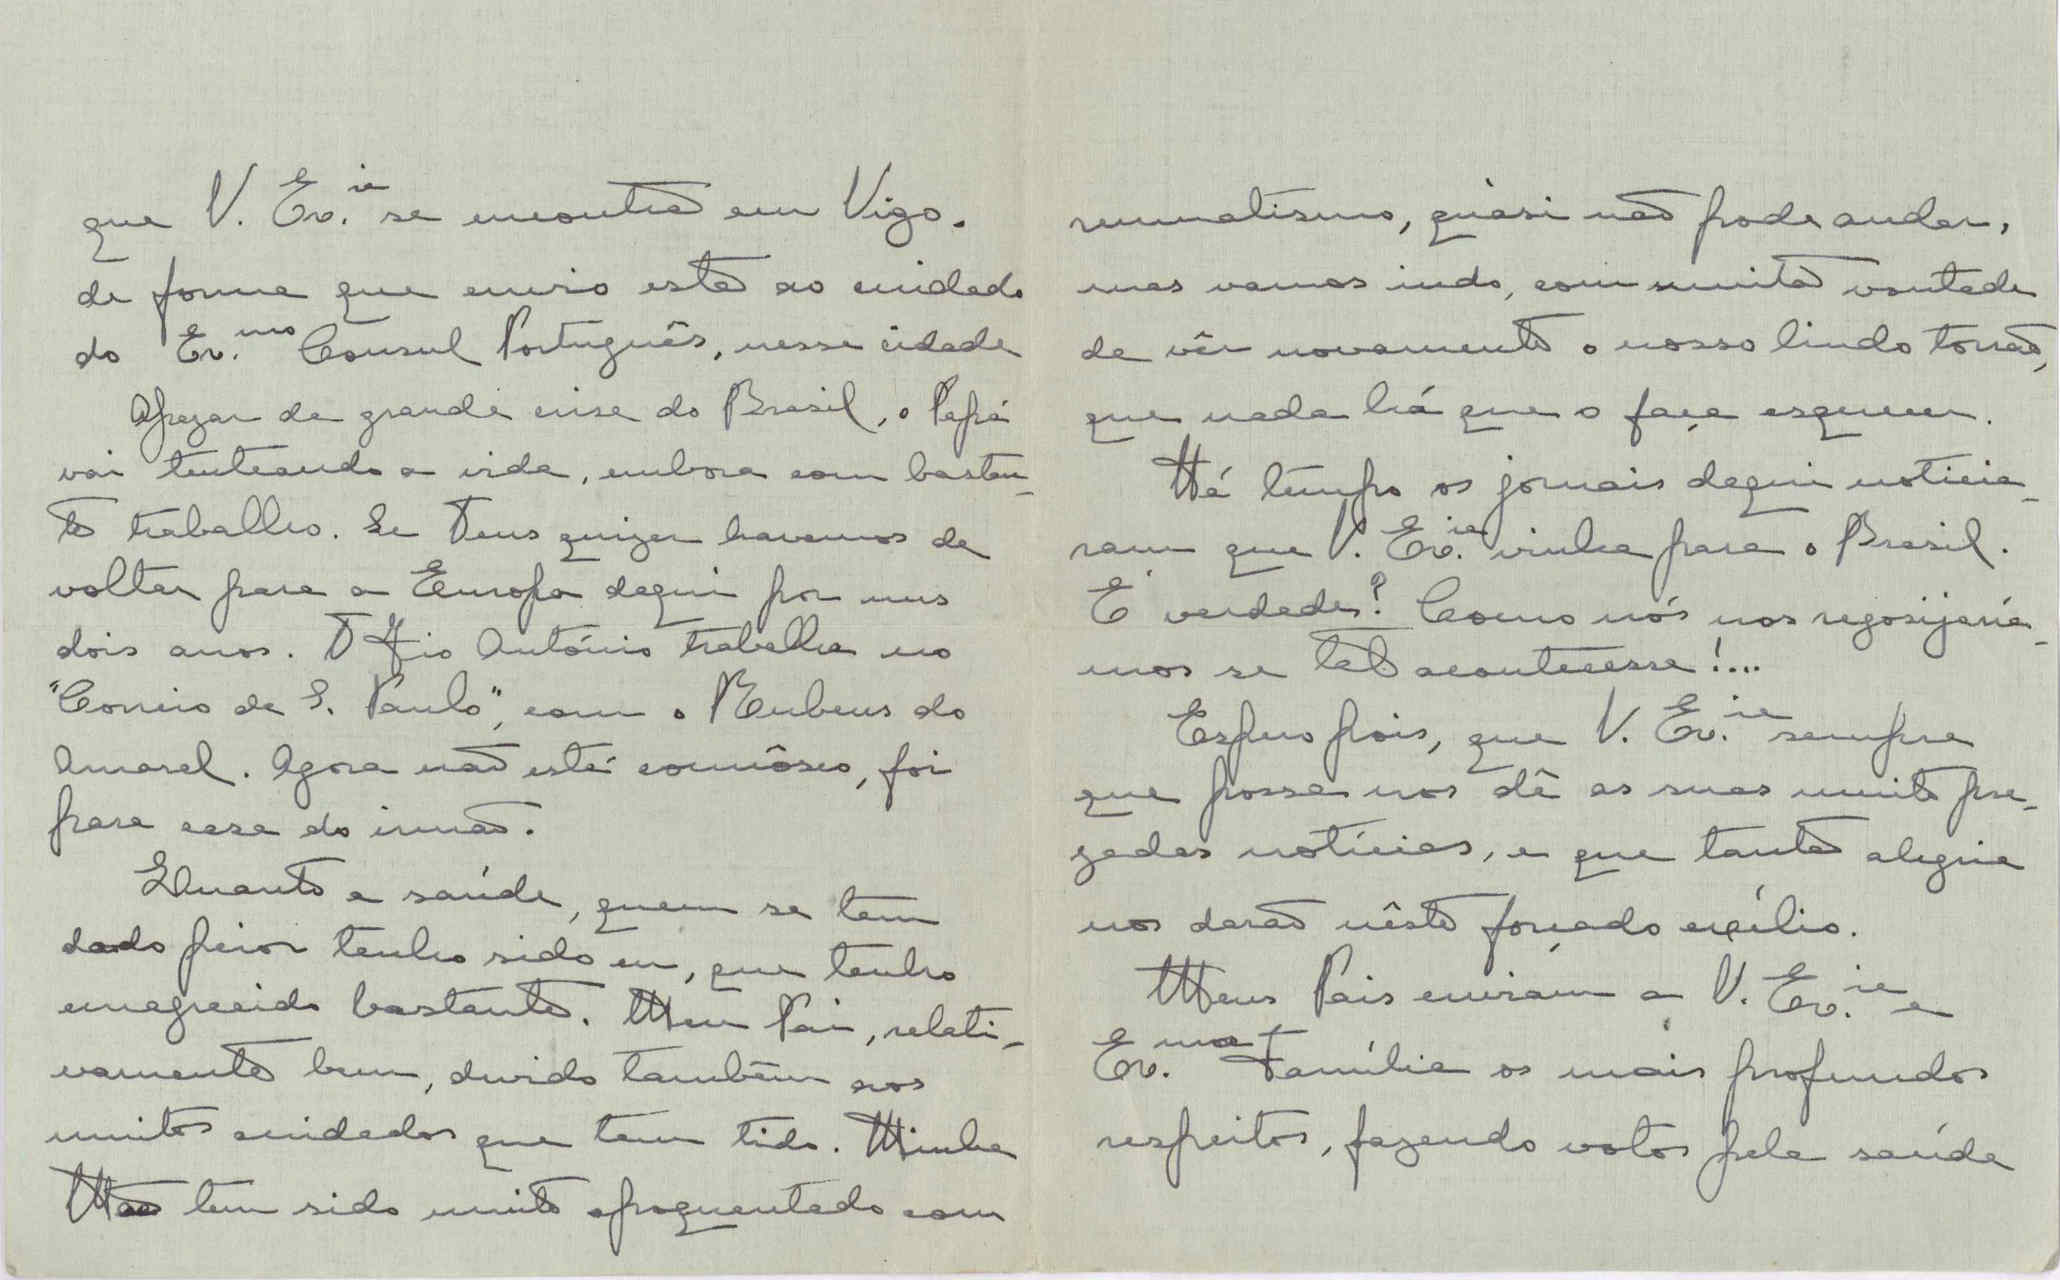 que V. Ex.ia se encontra em Vigo.
de forma que envio esta ao cuidado
do Ex.mo Consul Português, nessa cidade
Apezar da grande crise do Brasil, o Papá
vai tenteando a vida, embora com bastan-
te trabalho. Se Deus quizer havemos de
voltar para a Europa daqui por uns
dois anos. O Tio António trabalha no
"Correio de S. Paulo", com o Rubens do
Amaral. Agora não está connôsco, foi
para casa do irmão.
Quanto a saúde, quem se tem
dado peior tenho sido eu, que tenho
emagrecido bastante. Meu Pai, relati-
vamente bem, devido também aos
muitos cuidados que tem tido. Minha
Mãe tem sido muito apoquentada com
reumatismo, quàsi não pode andar,
mas vamos indo, com muita vontade
de vêr novamente o nosso lindo torrão,
que nada há que o faça esquecer.
Há tempo os jornais daqui noticia-
ram que V. Ex.ia vinha para o Brasil.
É verdade? Como nós nos regosijaría-
mos se tal acontecesse!...
Espero pois, que V. Ex.ia sempre
que possa nos dê as suas muito pre-
zadas notícias, e que tanta alegria
nos darão nêste forçado exílio.
Meus Pais enviam a V. Ex.ia e
Ex.ma Família os mais profundos
respeitos, fazendo votos pela saúde